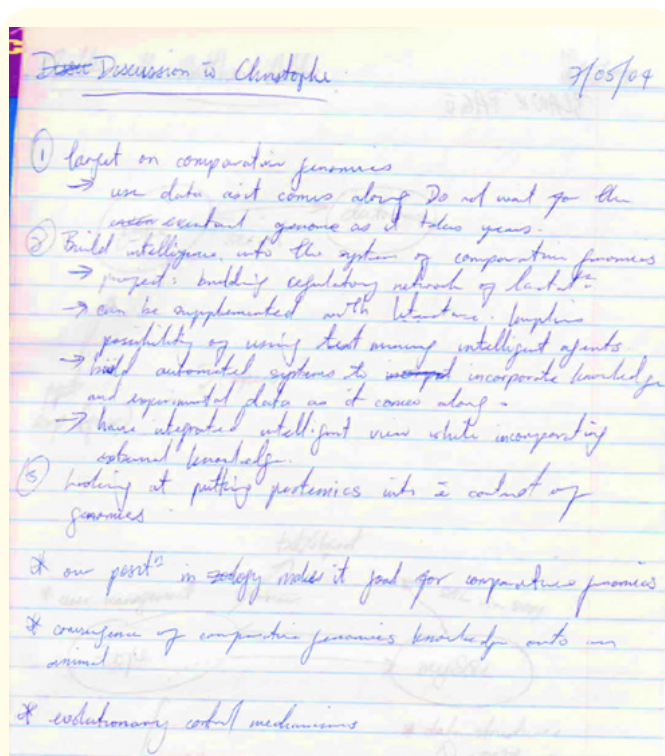 Discussion to Christophe 7/05/04
① Target on comparative genomics
→ use data as it comes along Do not wait for the
exeutant genome as it takes years.
② Build intelligence into the system of comparative genomics
→ project: building regulatory network of lactatⁿ
→ can be supplemented with literature. Implies
possibility of using text mining intelligent agents
→ build automated systems to incorporate knowledge
and experimental data as it comes along.
→ have integrated intelligent view while incorporating
external knowledge.
③ Looking at putting proteomics into context of
genomics
* our positⁿ in zoology makes it good for comparative genomics
* convergence of comparative genomics knowledge onto an
animal
* evolutionary control mechanisms